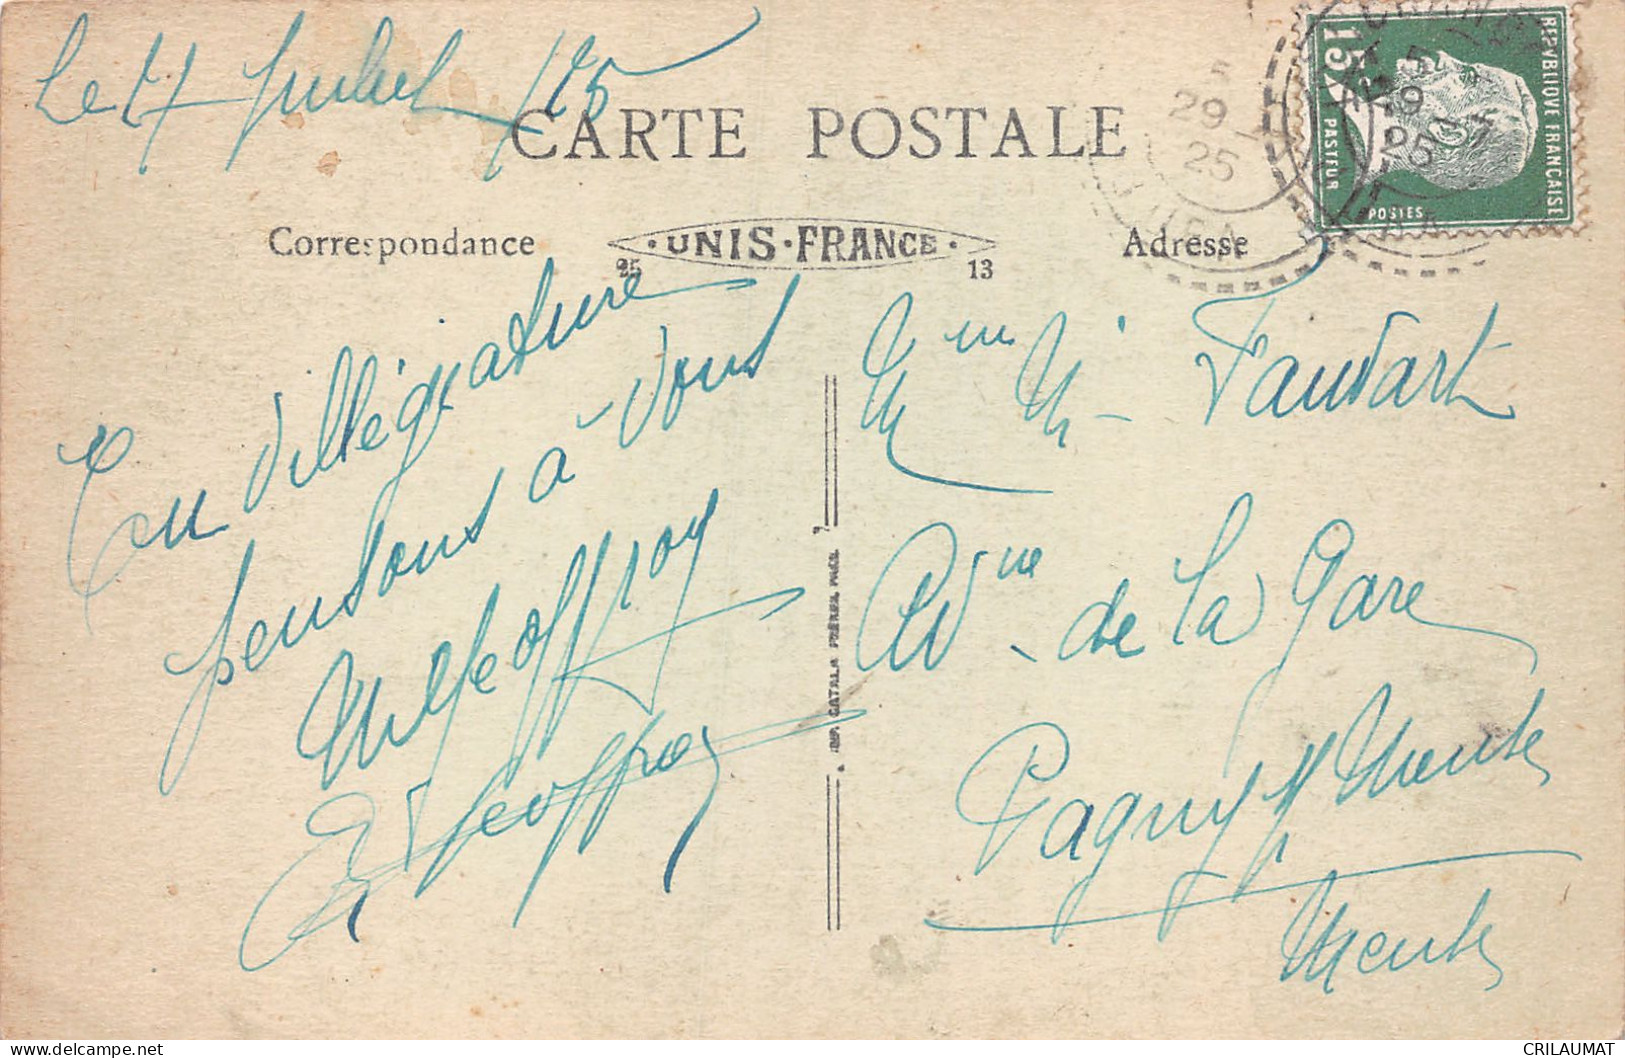 Le 27 Juillet 1925
CARTE POSTALE
Correspondance
UNIS-FRANCE
25 13
Adresse
RÉPUBLIQUE FRANÇAISE
15c
PASTEUR
POSTES
5
29
25
En villégiature
pensons à vous
Geoffroy
Geoffroy
IMP. CATALA FRÈRES, PARIS
Mme M. Faudart
Avnue de la Gare
Pagny s/ Meuse
Meuse
CRILAUMAT